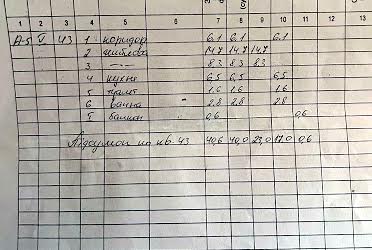 1 2 3 4 5 6 7 8 9 10 11 12 13
A-5 V 43 1 коридор 6,1 6,1 6,1
2 14,7 14,7 14,7
3 —〃— 8,3 8,3 8,3
4 кухня 6,5 6,5 6,5
5 туалет 1,6 1,6 1,6
6 ванна - 2,8 2,8 2,8
5 балкон 0,6 0,6
по кв. 43 40,6 40,0 23,0 17,0 0,6